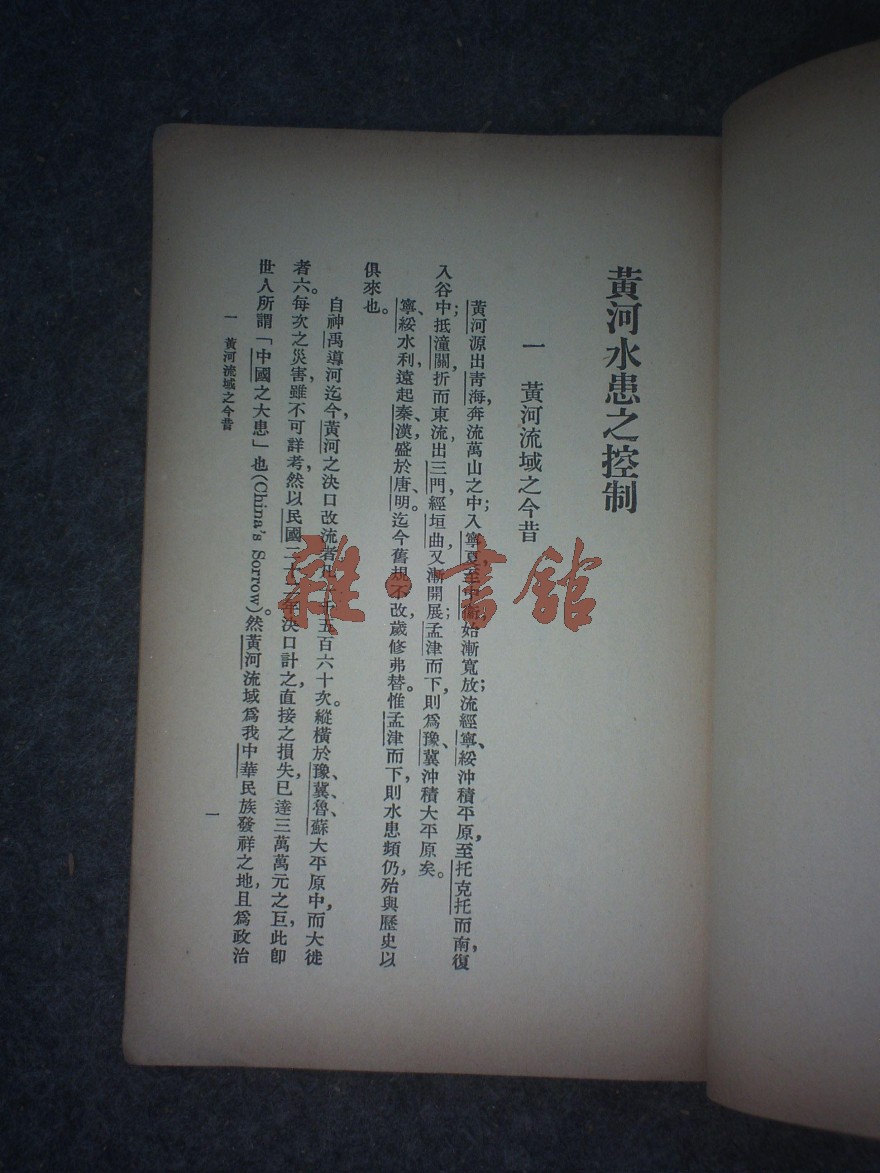 黃河水患之控制
一　黃河流域之今昔
黃河源出青海，奔流萬山之中；入寧夏至中衛，始漸寬放；流經寧、綏沖積平原，至托克托而南，復
入谷中；抵潼關，折而東流，出三門，經垣曲，又漸開展；孟津而下，則爲豫、冀沖積大平原矣。
寧、綏水利，遠起秦、漢，盛於唐、明。迄今舊規不改，歲修弗替。惟孟津而下，則水患頻仍，殆與歷史以
俱來也。
自神禹導河迄今，黃河之決口改流者凡一千五百六十次。縱橫於豫、冀、魯、蘇大平原中，而大徙
者六。每次之災害雖不可詳考，然以民國二十二年決口計之，直接之損失已達三萬萬元之巨，此卽
世人所謂「中國之大患」也（China's Sorrow）。然黃河流域爲我中華民族發祥之地，且爲政治
一　黃河流域之今昔
一
雜·書館